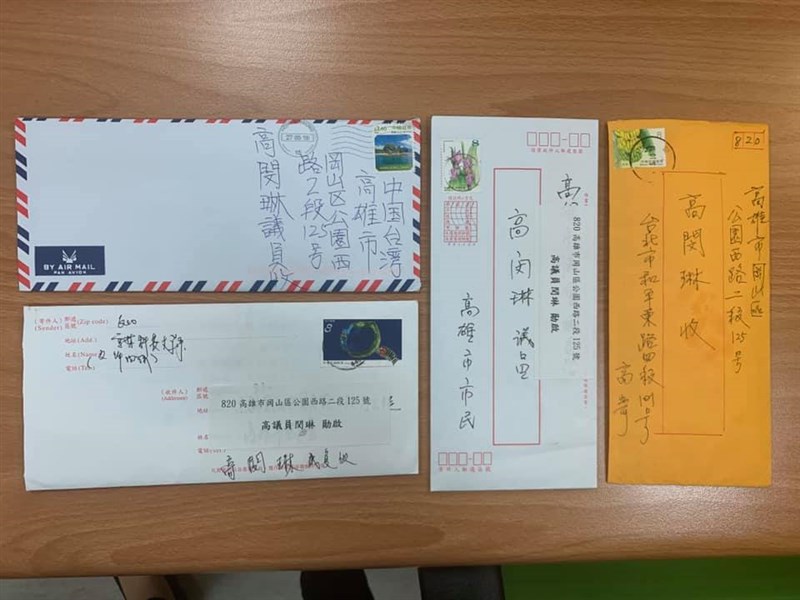 中国台湾
高雄市
岡山区公園西
路2段125号
高閔琳議員收
BY AIR MAIL
PAR AVION
8
郵遞區號
(Zip code)
(寄件人)
(Sender)
地址(Add.)
姓名(Name)
電話(Tel.)
(收件人)
(Addressee)
郵遞區號
地址
姓名
820 高雄市岡山區公園西路二段 125 號
高議員閔琳 勛啟
高閔琳議員收
8
高
820 高雄市岡山區公園西路二段 125 號
高議員閔琳 勛啟
高閔琳議員
高雄市市民
820
高雄市岡山區
公園西路二段125号
高閔琳收
台北市和平東路四段101号
高